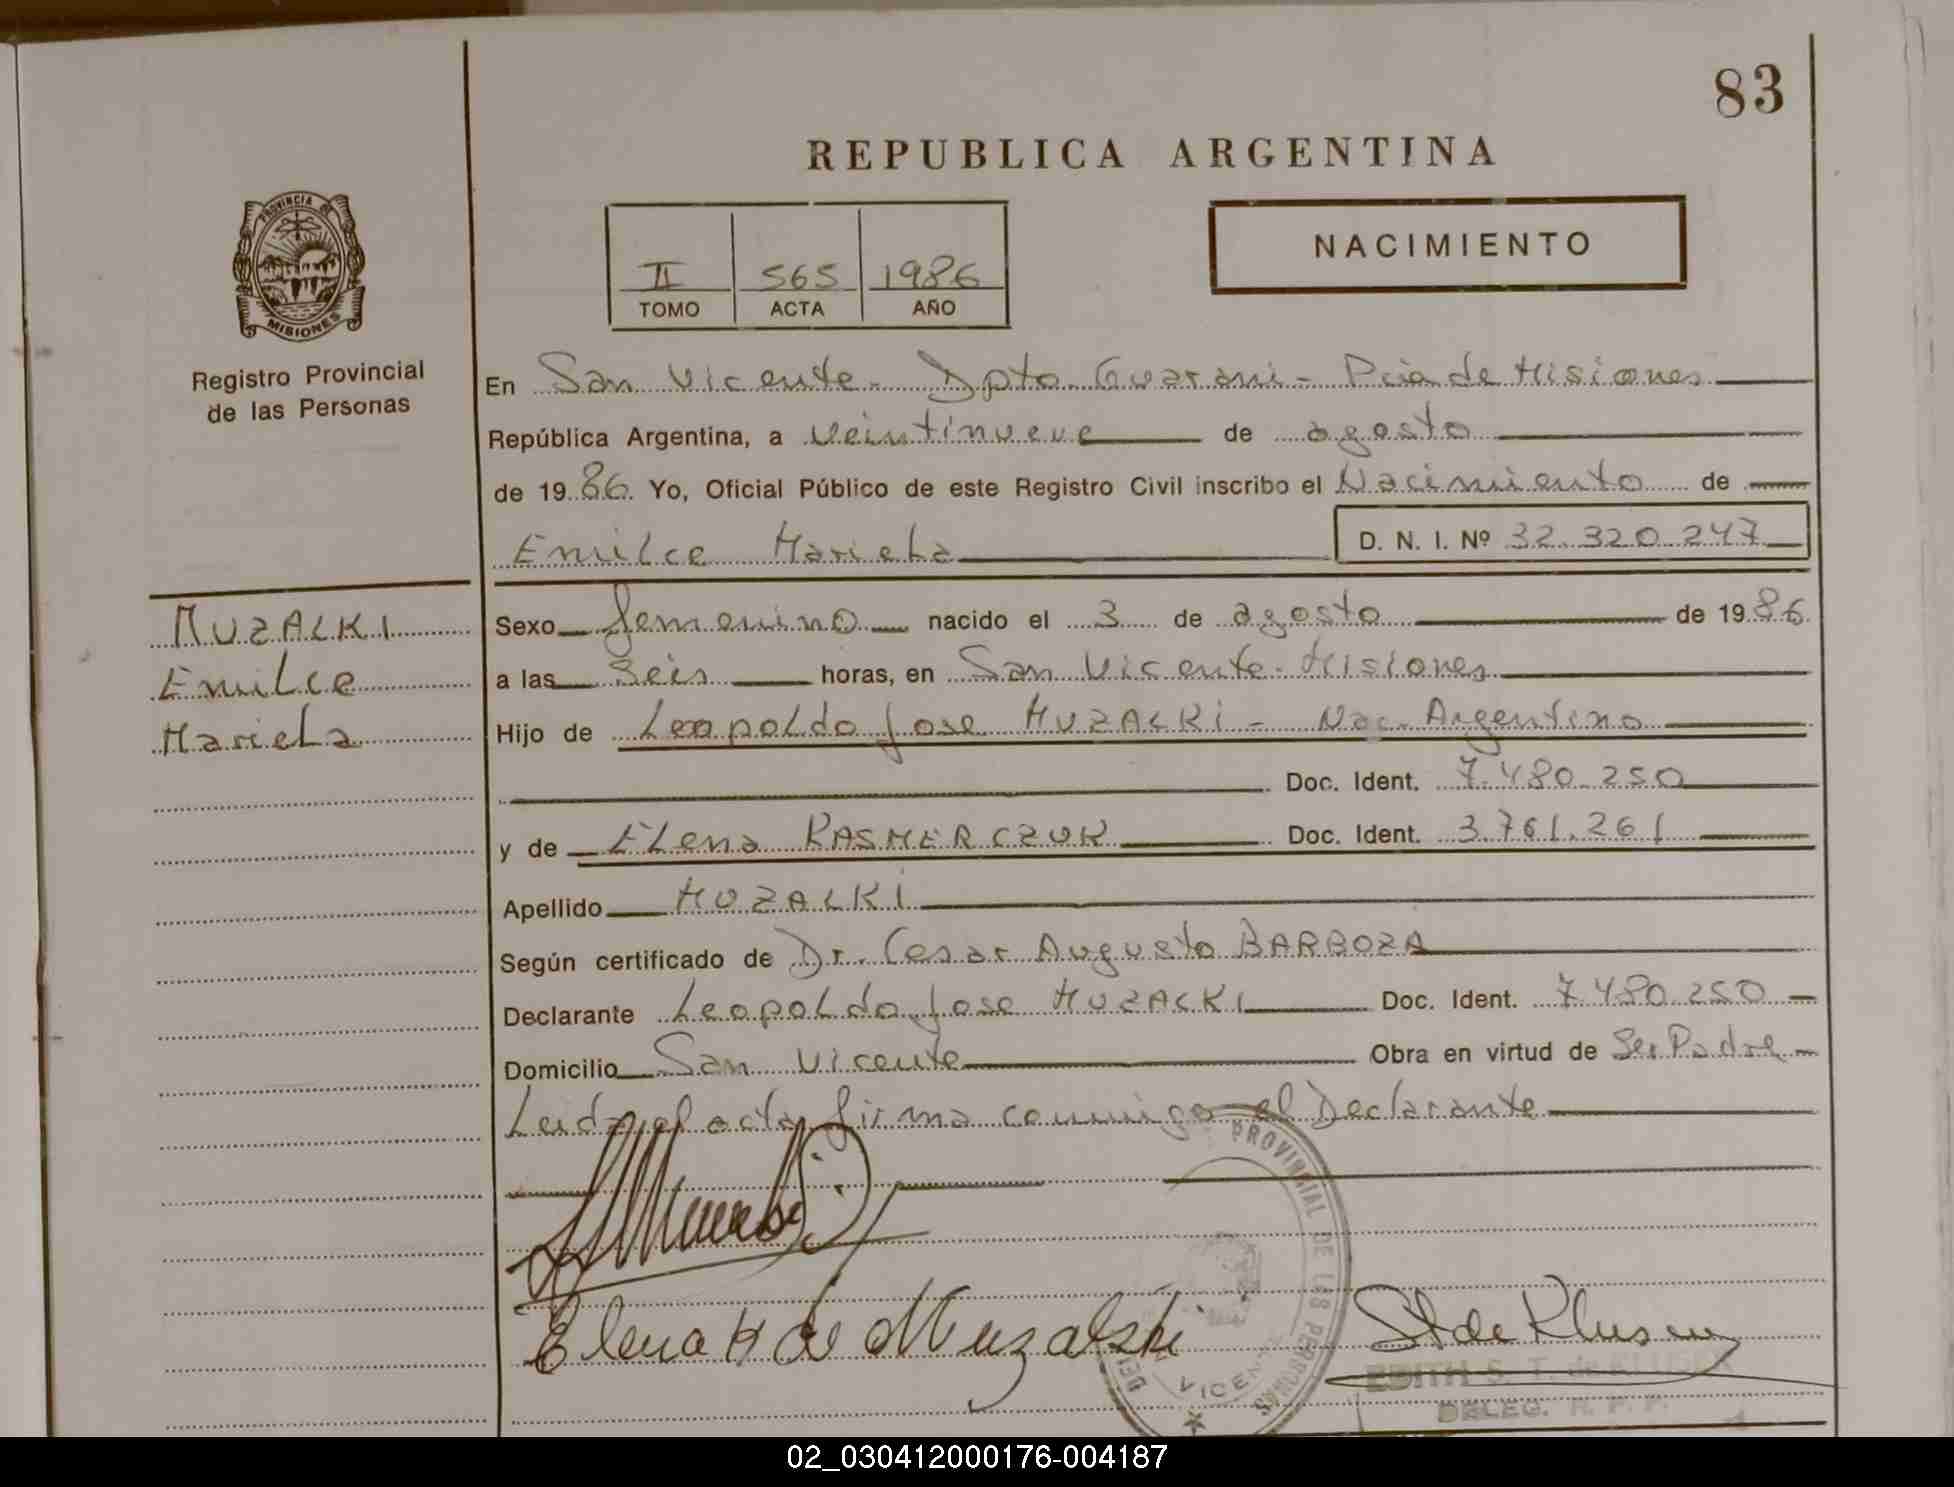 83
REPUBLICA ARGENTINA
PROVINCIA DE
MISIONES
Registro Provincial
de las Personas
II 565 1986
TOMO ACTA AÑO
NACIMIENTO
En San Vicente - Dpto Guarani - Pcia de Misiones
República Argentina, a veintinueve de agosto
de 1986. Yo, Oficial Público de este Registro Civil inscribo el Nacimiento de
Emilce Mariela D. N. I. Nº 32.320.247
MUZALKI
Emilce
Mariela
Sexo femenino nacido el 3 de agosto de 1986
a las seis horas, en San Vicente - Misiones
Hijo de Leopoldo Jose MUZALKI - Nac. Argentino
Doc. Ident. 7.480.250
y de Elena KASMERCZUK Doc. Ident. 3.761.261
Apellido MUZALKI
Según certificado de Dr. Cesar Augusto BARBOZA
Declarante Leopoldo Jose MUZALKI Doc. Ident. 7.480.250
Domicilio San Vicente Obra en virtud de Ser Padre
Leida el acta firma conmigo el Declarante
PROVINCIAL DE LAS PERSONAS
VICENTE
Elena K de Muzalski
St de Klusen
EDITH S. T. de KLUSEN
DELEG. R. P. P.
02_030412000176-004187